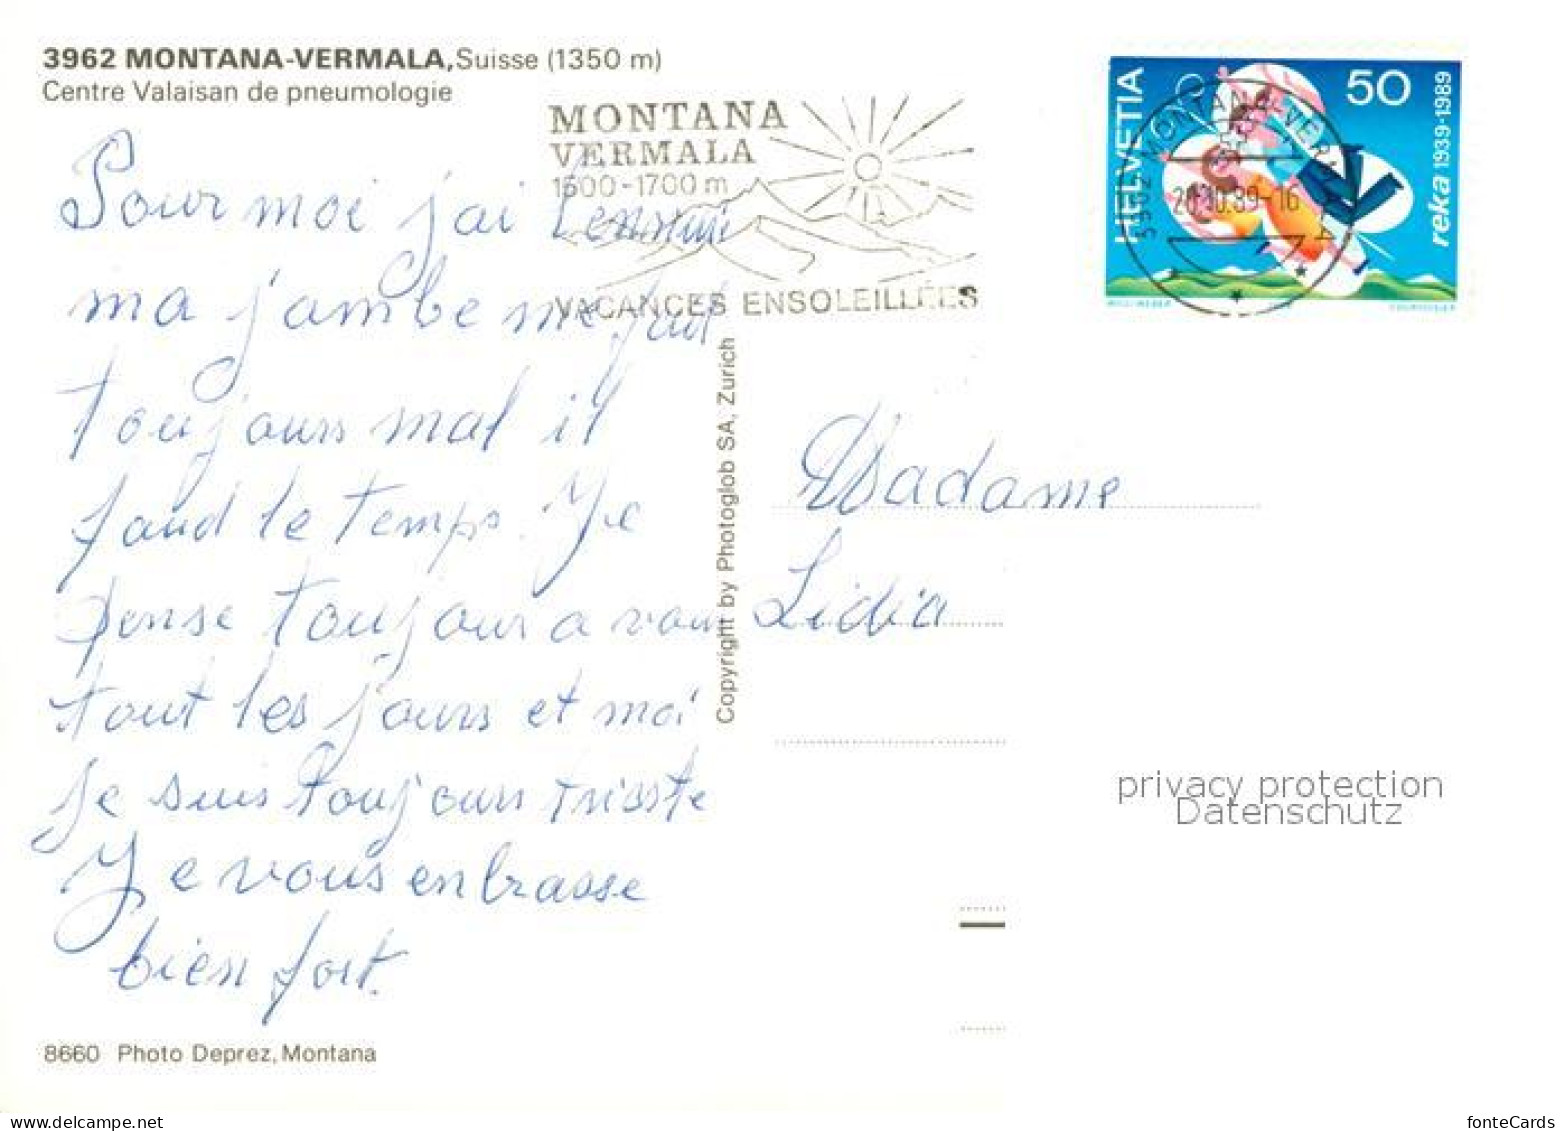 3962 MONTANA-VERMALA, Suisse (1350 m)
Centre Valaisan de pneumologie
MONTANA
VERMALA
1500-1700 m
VACANCES ENSOLEILLÉES
HELVETIA
50
reka 1939-1989
3962 MONTANA-VERMALA
20.10.89-16
Pour moi j'ai
ma j'ambe me fait
toujours mal il
faud le temps. Je
pense toujour a vous
tout les jours et moi
je suis toujours trisste
Je vous enbrasse
bien fort.
Madame
Lidia
Copyright by Photoglob SA, Zurich
privacy protection
Datenschutz
8660 Photo Deprez, Montana
fonteCards